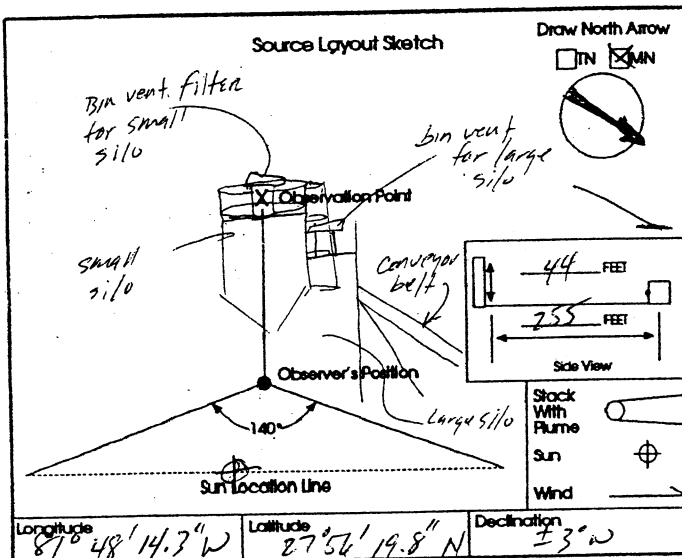 Source Layout Sketch
Draw North Arrow
TN
MN
Bin vent filter
for small
silo
bin vent
for large
silo
X Observation Point
small
silo
Conveyor
belt
44 FEET
255 FEET
Side View
Observer's Position
140°
Large silo
Sun Location Line
Stack
With
Plume
Sun
Wind
Longitude
Latitude
27° 56' 19.8" N
Declination
± 3° W